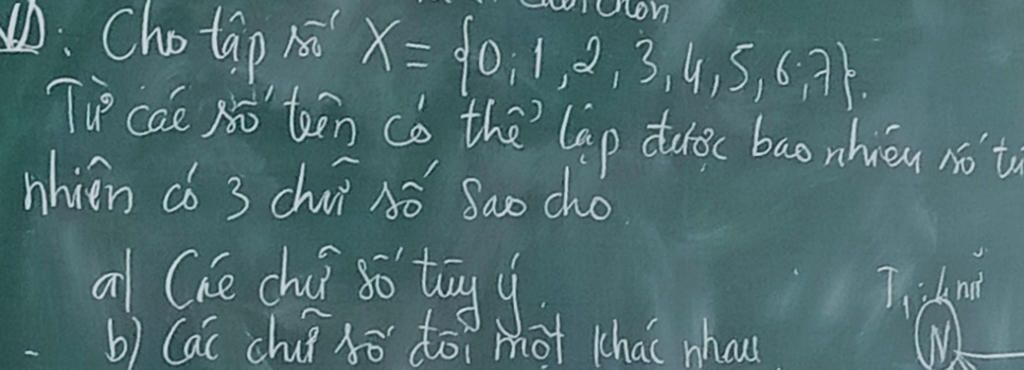 VD: Cho tập số X = {0; 1, 2, 3, 4, 5, 6; 7}.
Từ các số trên có thể lập được bao nhiêu số
nhiên có 3 chữ số sao cho
a) Các chữ số tùy ý.
T₁: 4 nữ
b) Các chữ số đôi một khác nhau
N